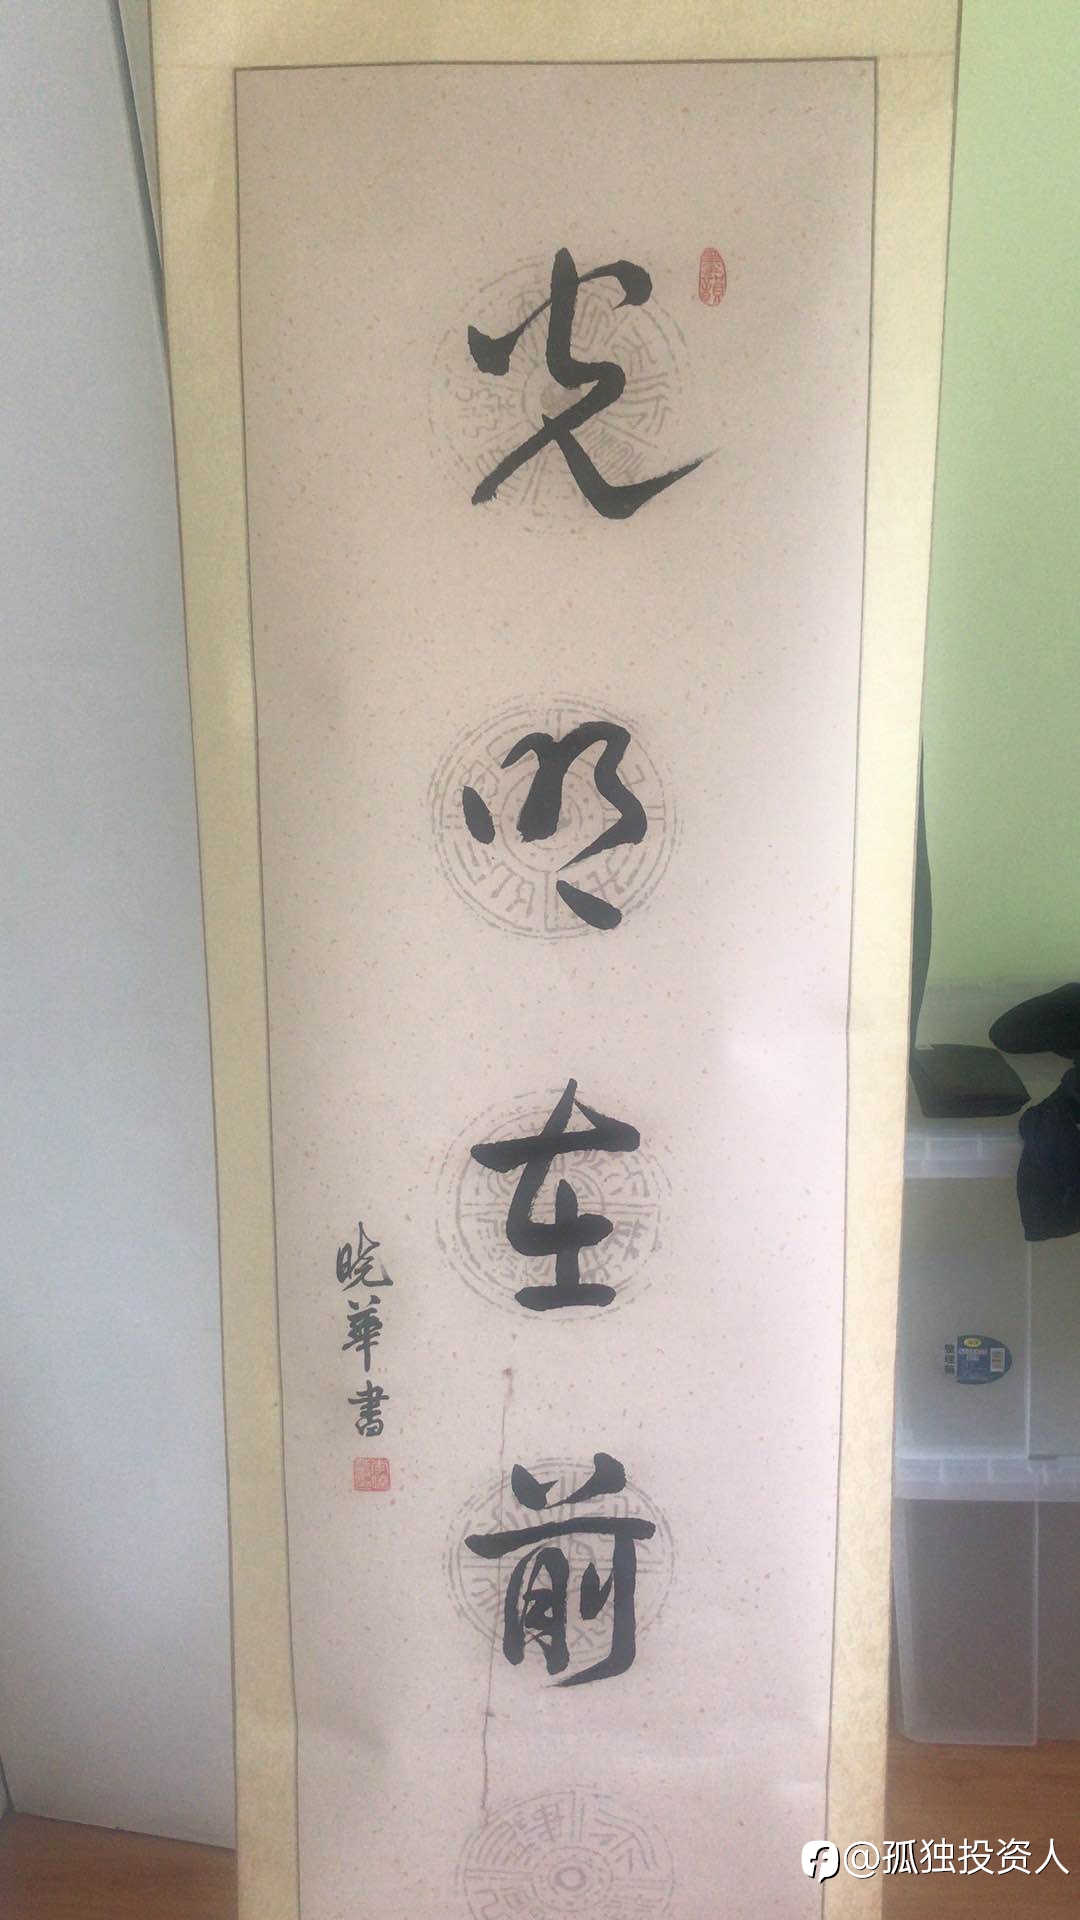 光明在前
晓華書
整理箱
@孤独投资人